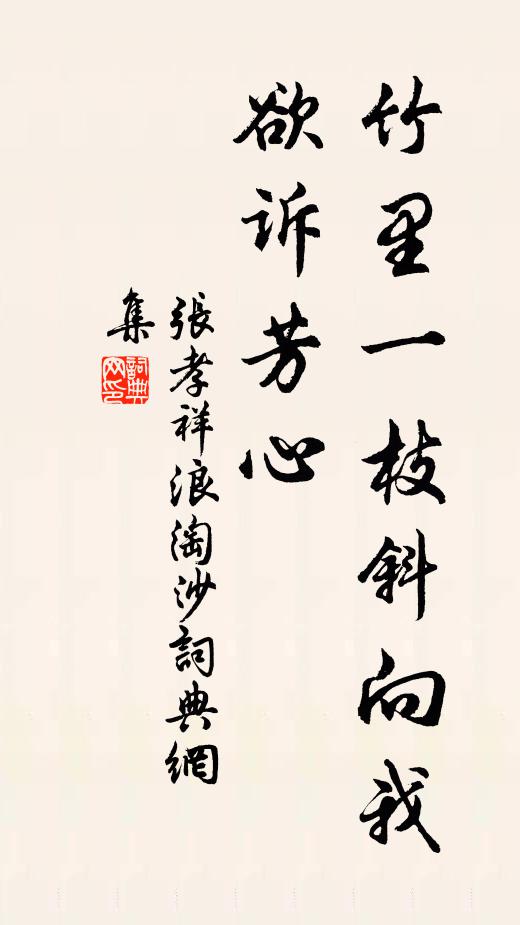 竹里一枝斜向我
欲诉芳心
張孝祥浪淘沙詞典網
集
詞典
网印